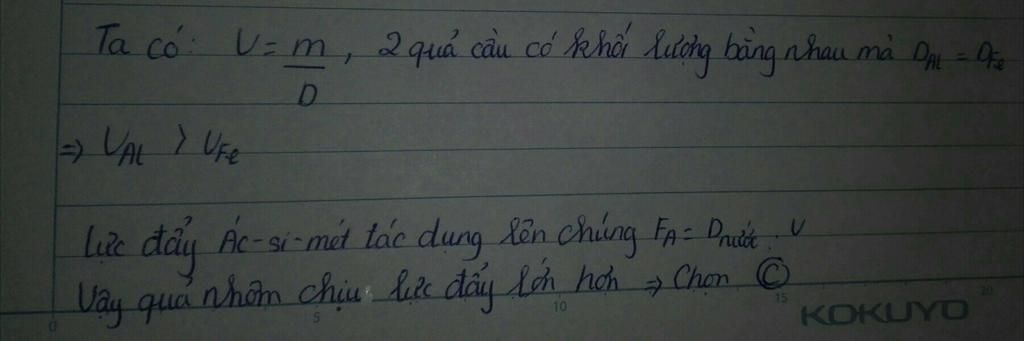 Ta có: V = m/D, 2 quả cầu có khối lượng bằng nhau mà D_Al = D_Fe
=> V_Al > V_Fe
Lực đẩy Ác-si-mét tác dụng lên chúng F_A = D_nước . V
Vậy quả nhôm chịu lực đẩy lớn hơn => Chọn Ⓒ
0 5 10 15 20
KOKUYO